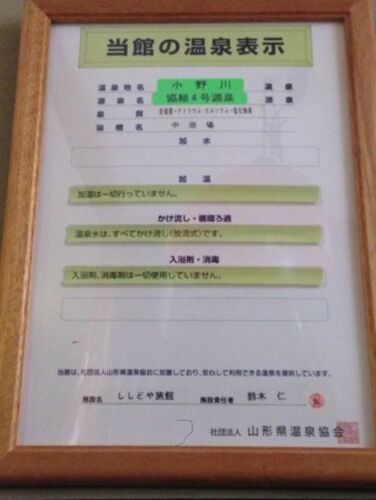 当館の温泉表示
温泉地名 小野川 温泉
源泉名 協組4号源泉 源泉
泉質 含硫黄-ナトリウム・カルシウム-塩化物泉
浴槽名 中浴場
加水
加温
加温は一切行っていません。
かけ流し・循環ろ過
温泉水は、すべてかけ流し(放流式)です。
入浴剤・消毒
入浴剤、消毒剤は一切使用していません。
当館は、社団法人山形県温泉協会に加盟しており、安心して利用できる温泉を提供しています。
施設名 ししどや旅館 施設責任者 鈴木 仁
社団法人 山形県温泉協会